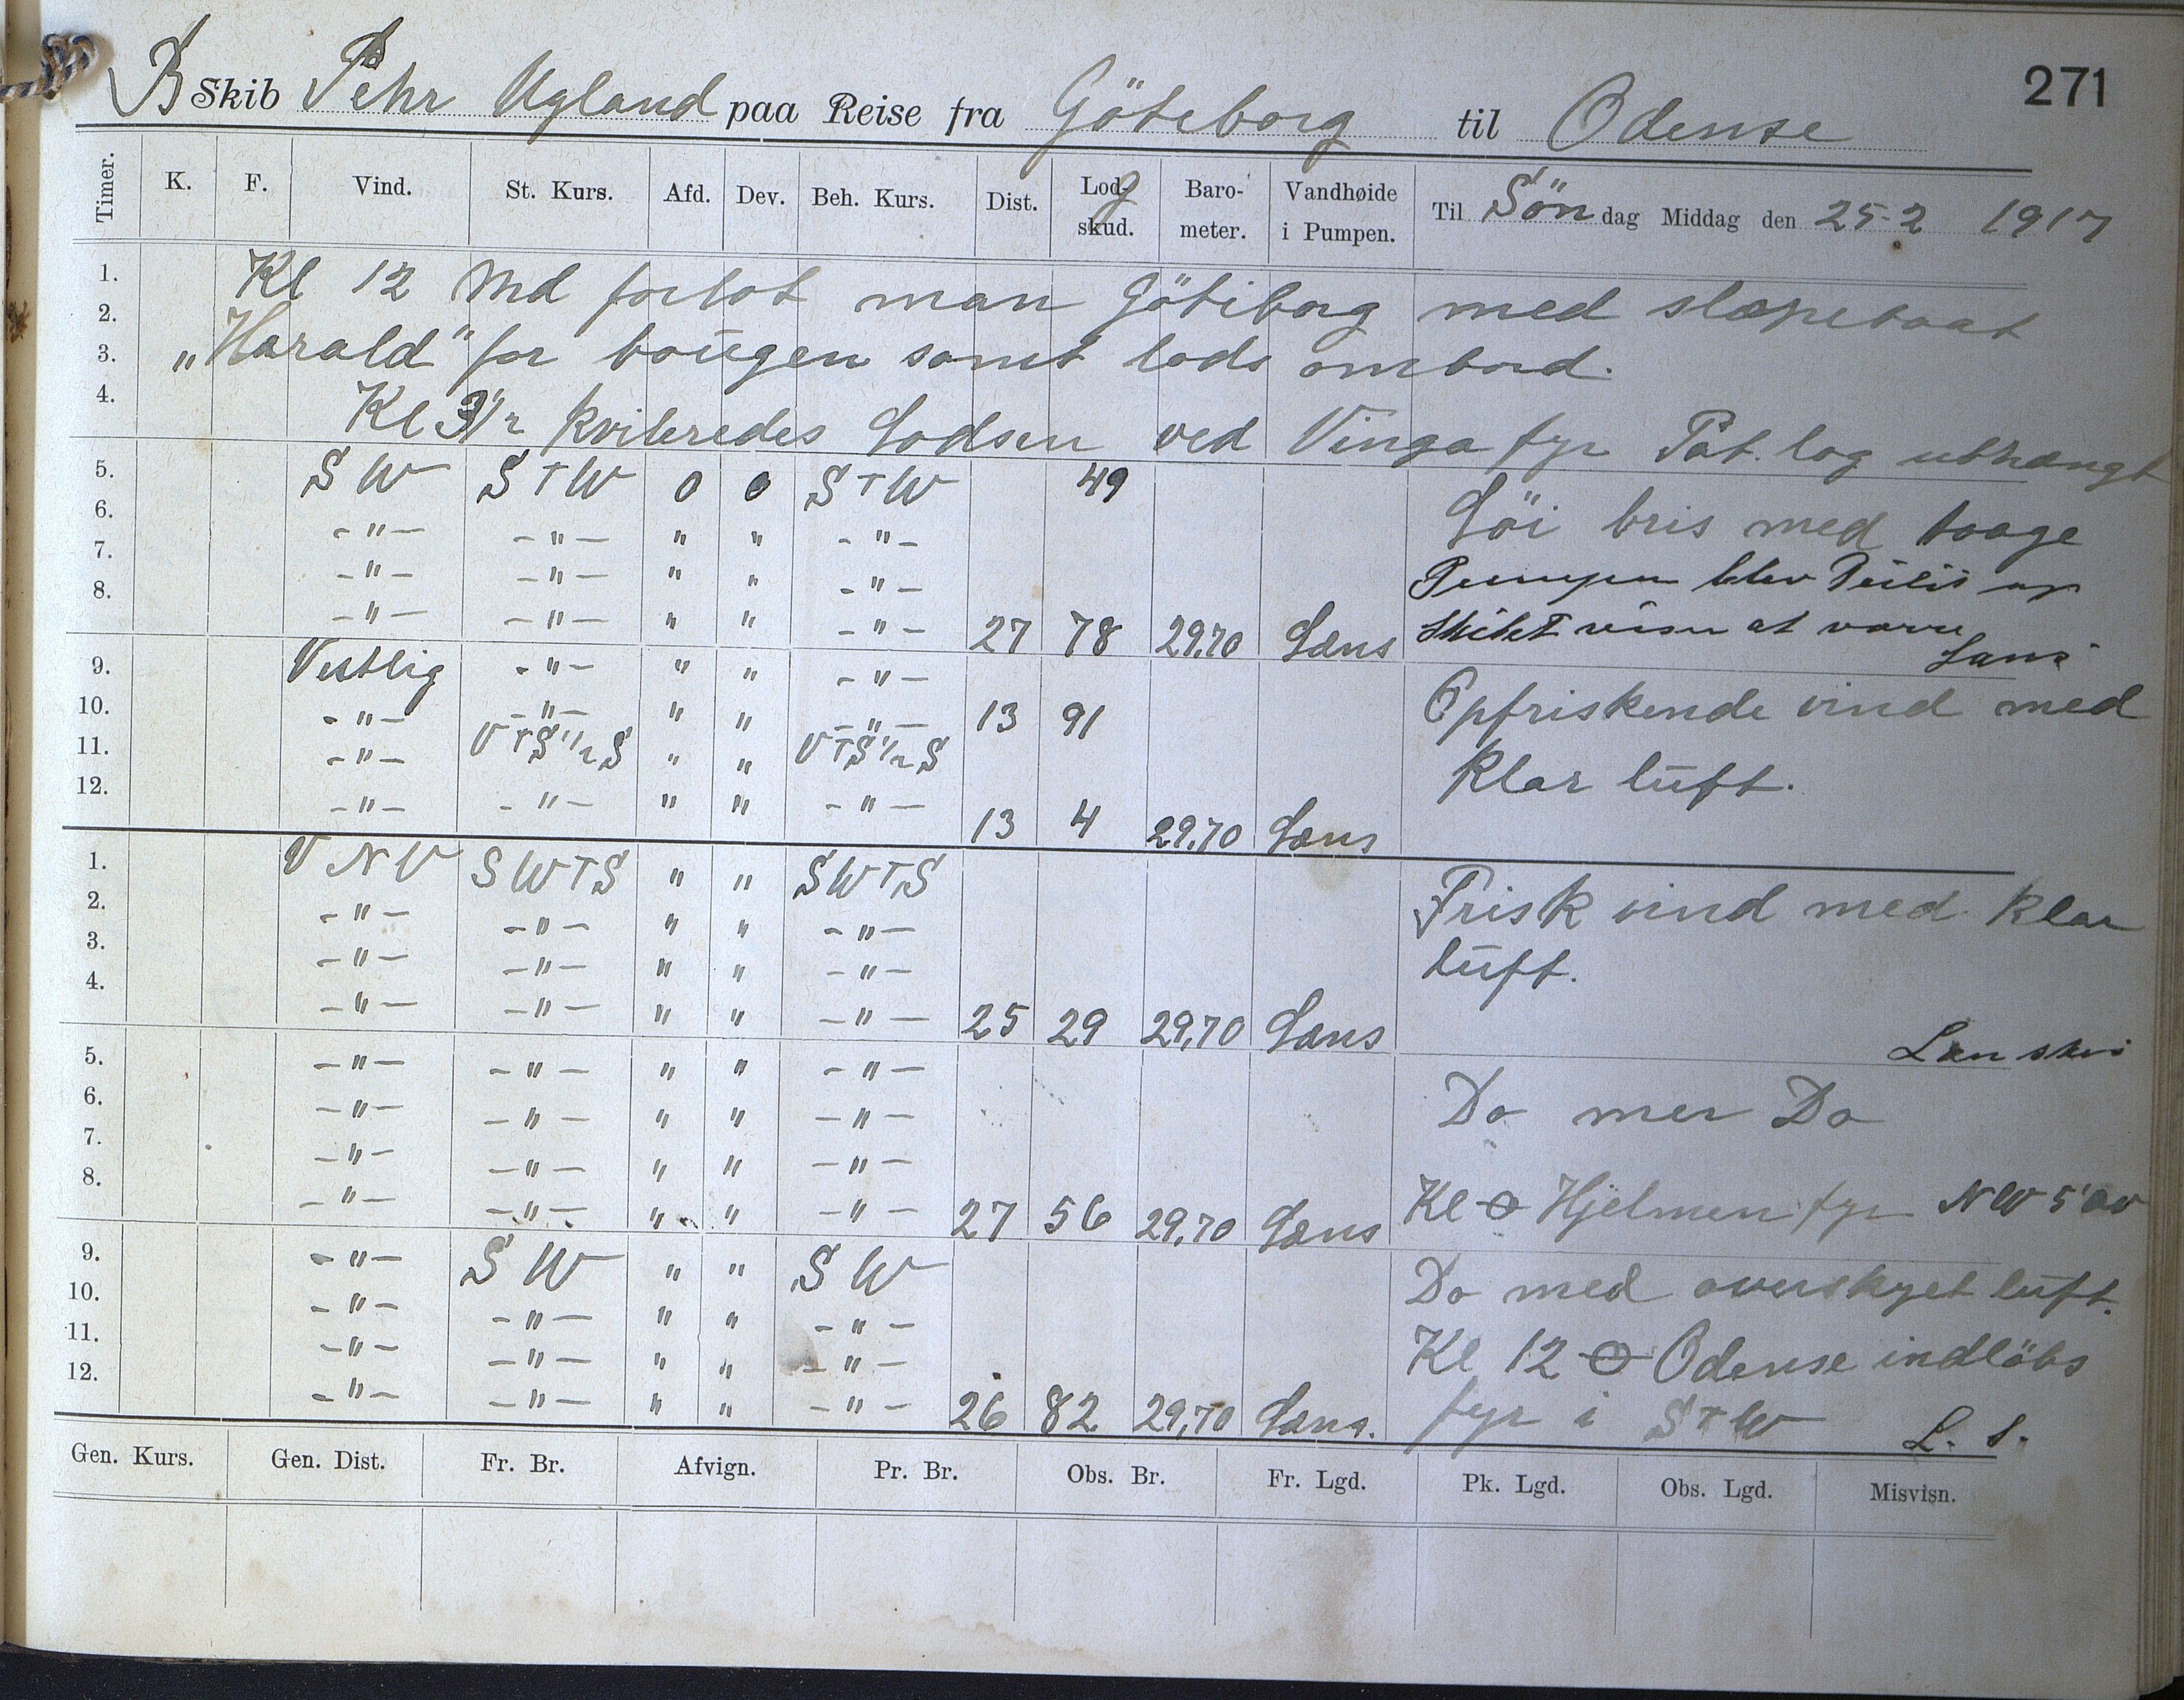 271
B Skib Pehr Ugland paa Reise fra Göteborg til Odense
Timer. K. F. Vind. St. Kurs. Afd. Dev. Beh. Kurs. Dist. Log skud. Baro-meter. Vandhøide i Pumpen. Til Søndag Middag den 25-2 1917
1. Kl 12 Md forlot man Götiborg med slæpebaat
2. „Harald" for baugen samt lods ombord.
3.
4. Kl 3 1/2 kviteredes Lodsen ved Vinga fyr Pat. log uthængt
5. SW STW 0 0 STW 49 Löi bris med taage
6. -"- -"- " " -"-
7. -"- -"- " " -"- Pumpen blev Peilit og
8. -"- -"- " " -"- 27 78 29.70 Læns Skibet viser at være Læns
9. Vestlig -"- " " -"-
10. -"- -"- " " -"- 13 91 Opfriskende vind med
11. -"- VTS 1/2 S " " VTS 1/2 S klar luft.
12. -"- -"- " " -"- 13 4 29.70 Læns
1. VNV SWTS " " SWTS Frisk vind med klar
2. -"- -"- " " -"- luft.
3. -"- -"- " " -"-
4. -"- -"- " " -"- 25 29 29,70 Læns
5. -"- -"- " " -"-
6. -"- -"- " " -"- Do mer Do
7. -"- -"- " " -"-
8. -"- -"- " " -"- 27 56 29,70 Læns Kl Hjelmen fyr NW 5' av
9. -"- SW " " SW Do med overskyet luft.
10. -"- -"- " " -"-
11. -"- -"- " " -"- Kl 12 Odense indlöbs
12. -"- -"- " " -"- 26 82 29,70 Læns. fyr i STW L. S.
Gen. Kurs. Gen. Dist. Fr. Br. Afvign. Pr. Br. Obs. Br. Fr. Lgd. Pk. Lgd. Obs. Lgd. Misvisn.